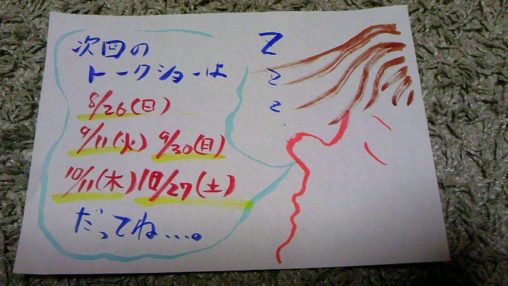 次回の
トークショーは
8/26(日)
9/11(火) 9/30(日)
10/11(木) 10/27(土)
だってね….。
Z
Z
Z